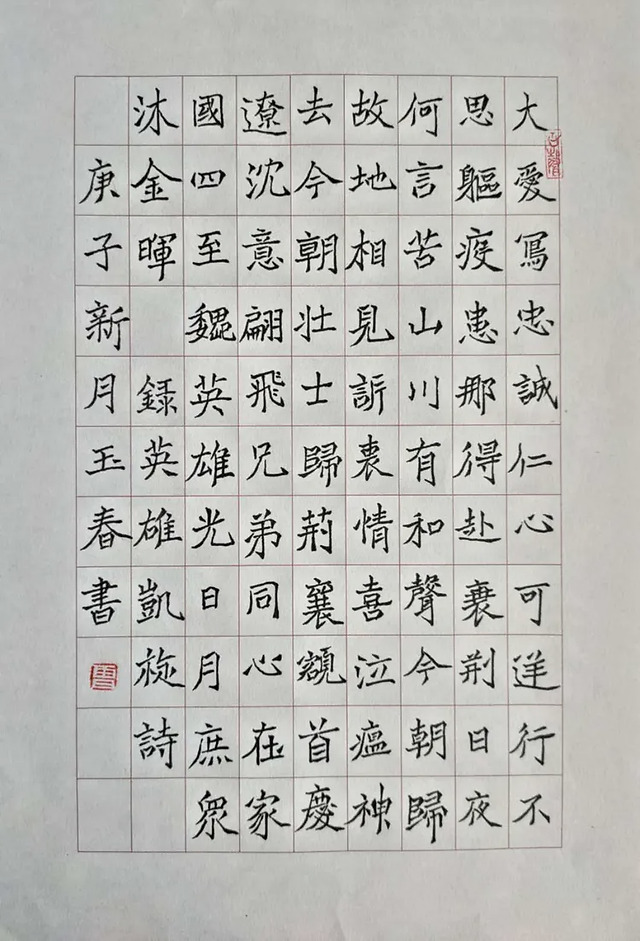 大愛寫忠誠仁心可逆行不
思軀疫患那得赴衰荊日夜
何言苦山川有和聲今朝歸
故地相見訴衷情喜泣瘟神
去今朝壯士歸荊襄額首慶
遼沈意翩飛兄弟同心在家
國四至魏英雄光日月庶眾
沐金暉 錄英雄凱旋詩
庚子新月玉春書